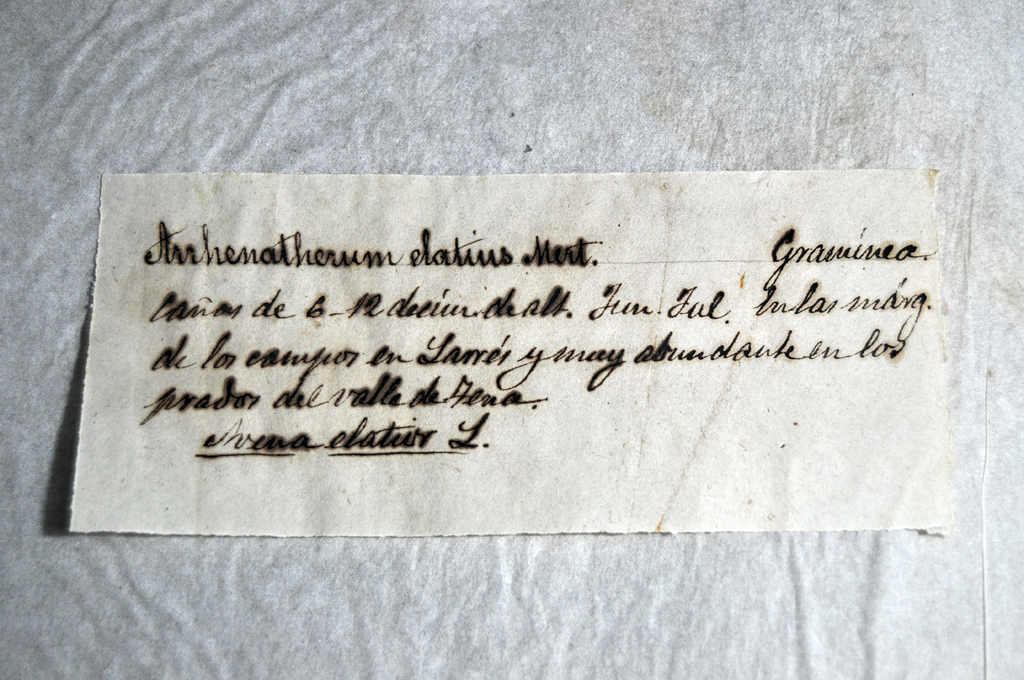 Arrhenatherum elatius Mert. Gramínea.
Cañas de 6-12 decím. de alt. Jun. Jul. En las márg.
de los campos en Larrés y muy abundante en los
prados del valle de Tena.
Avena elatior L.